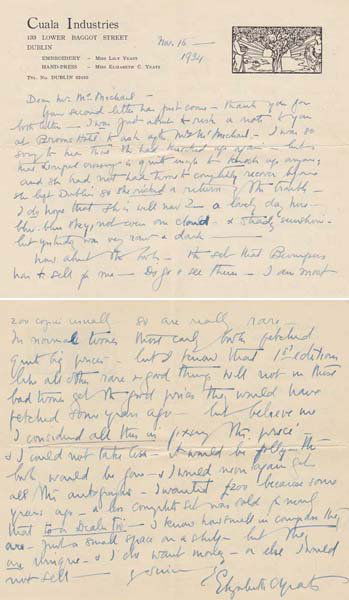 Cuala Industries
133 LOWER BAGGOT STREET
DUBLIN
EMBROIDERY - MISS LILY YEATS
HAND-PRESS - MISS ELIZABETH C. YEATS
TEL. NO. DUBLIN
Nov. 16 —
1934
Dear Mr. McMechael —
Your second letter has just come — thank you for
both letters — I was just about to rush a note to you
at Hotel to ask after Mrs McMechael — I was so
sorry to hear that she had knocked up again — but a
crossing is quite enough to knock up anyone,
and she had not had time to completely recover before
she left Dublin so she risked a return of the trouble —
I do hope that she is well now — a lovely day here —
blue blue sky, not even one cloud — & steady sunshine —
but yesterday was very raw & dark —
Now about the books — the set that Bumpers
has to sell for me — Do go & see them — I am most
200 copies usually so are really rare —
In normal times these early books fetched
quite big prices — but I know that 1st editions
like all other rare & good things will not in these
bad times get the good prices they would have
fetched some years ago — but believe me
I considered all this in fixing this price
& I could not take less — it would be folly — the
books would be gone & I would never again get
all the autographs — I wanted £200 because some
years ago — a less complete set was sold for
that to a Dealer — I know how small in compass they
are — just a small space on a shelf — but they
are unique — & I do want money — or else I would
not sell —
Elizabeth C Yeats